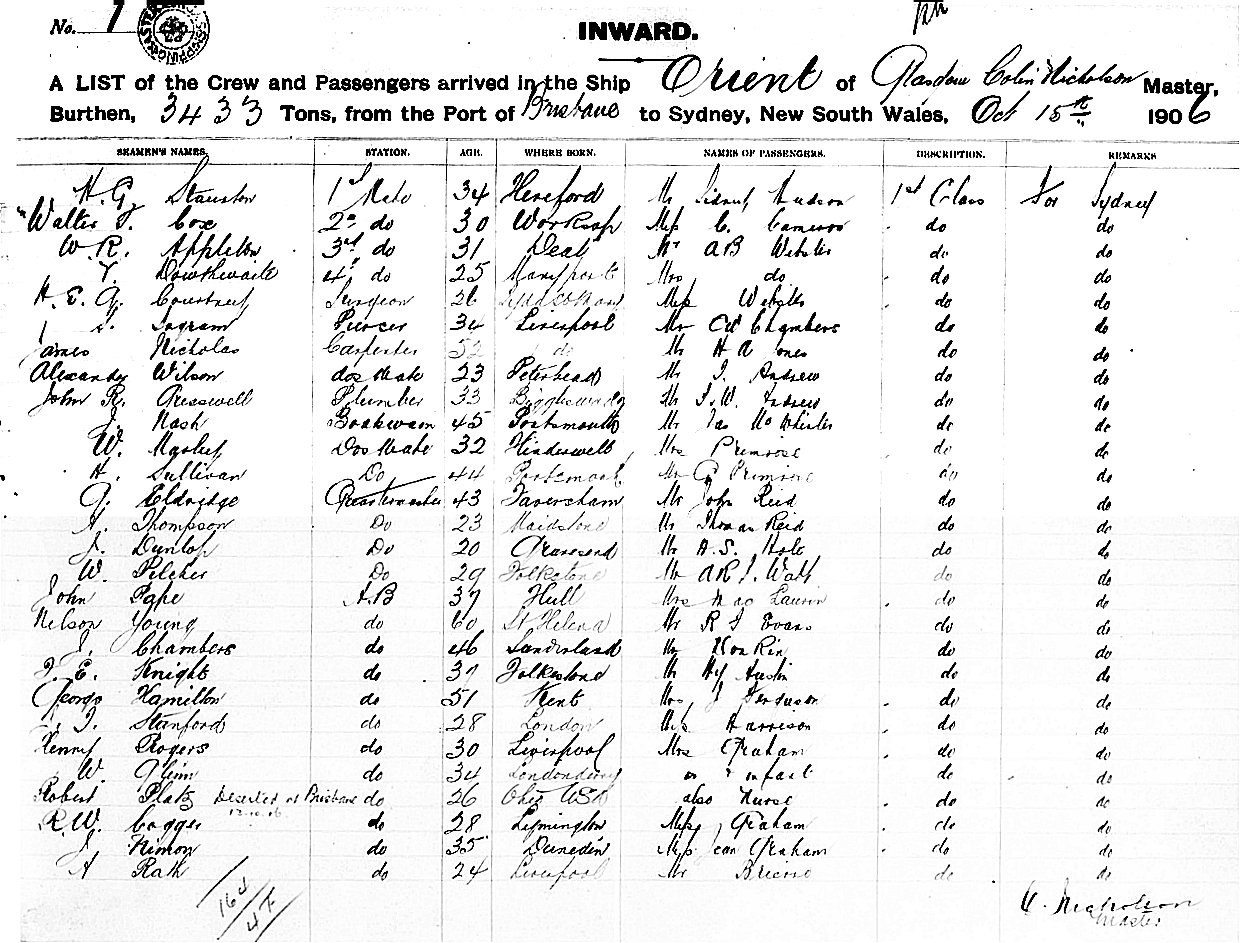 No. 1
INWARD.
A LIST of the Crew and Passengers arrived in the Ship Orient of Glasgow Colin Nicholson Master,
Burthen, 3433 Tons, from the Port of Brisbane to Sydney, New South Wales, Oct 15th 1906
SEAMEN'S NAMES. STATION. AGE. WHERE BORN. NAMES OF PASSENGERS. DESCRIPTION. REMARKS
H. G. Staunton 1st Mate 34 Hereford Mr Sidney Hudson 1st Class For Sydney
Walter T. Cox 2nd do 30 Worksop Miss C. Cameron do do
W. R. Appleton 3rd do 31 Deal Mr A B Webster do do
T. Dowthwaite 4th do 25 Maryport Mrs do do do
H. E. G. Courtney Surgeon 26 Miss Webster do do
S. Ingram Purser 34 Liverpool Mr CW Chambers do do
James Nicholas Carpenter 52 do Mr H A Jones do do
Alexander Wilson dos Mate 23 Peterhead Mr J. Andrew do do
John R. Cresswell Plumber 33 Biggleswade Mr J. W. Andrew do do
J. Nash Boatswain 45 Portsmouth Mr Jas McWhirter do do
W. Dos Mate 32 Hinderwell Mrs Primrose do do
H. Sullivan Do 44 Portsmouth Mr G Primrose do do
G. Eldridge Quartermaster 43 Faversham Mr John Reid do do
A. Thompson Do 23 Maidstone Mr Thomas Reid do do
J. Dunlop Do 20 Gravesend Mr A. S. Hole do do
W. Pilcher Do 29 Folkstone Mr A R J. Watt do do
John Pape A.B 37 Hull Mrs Mac Laurin do do
Nelson Young do 60 St Helena Mr R J Evans do do
J. Chambers do 46 Sunderland Mr Kin do do
J. E. Knight do 37 Folkestone Mr Hy Austin do do
George Hamilton do 51 Kent Mrs J Ferguson do do
J. Stanford do 28 London Miss Harrison do do
Henry Rogers do 30 Liverpool Mrs Graham do do
W. Glinn do 34 Londonderry " & infant do do
Robert Platz Deserted at Brisbane do 26 Ohio USA also Nurse do do
13.10.06
R. W. Cogger do 28 Lymington Miss J Graham do do
J. Nimon do 35 Dunedin Miss Jean Graham do do
A Rath do 24 Liverpool Mr do do
164
47
C. Nicholson
Master